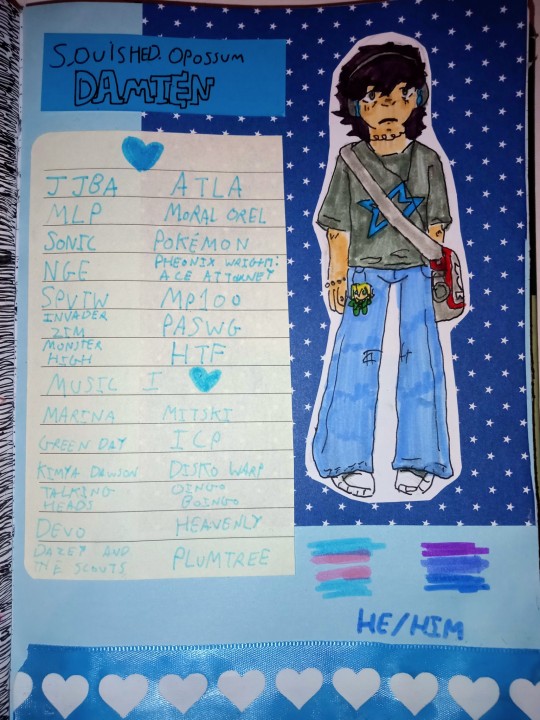 S.OUISHED.OPOSSUM
DAMIEN
JJBA ATLA
MLP MORAL OREL
SONIC POKÉMON
NGE PHEONIX WRIGHT: ACE ATTORNEY
SPVTW MP100
INVADER ZIM PASWG
MONSTER HIGH HTF
MUSIC I
MARINA MITSKI
GREEN DAY ICP
KIMYA DAWSON DISKO WARP
TALKING HEADS OINGO BOINGO
DEVO HEAVENLY
DAZEY AND THE SCOUTS PLUMTREE
HE/HIM